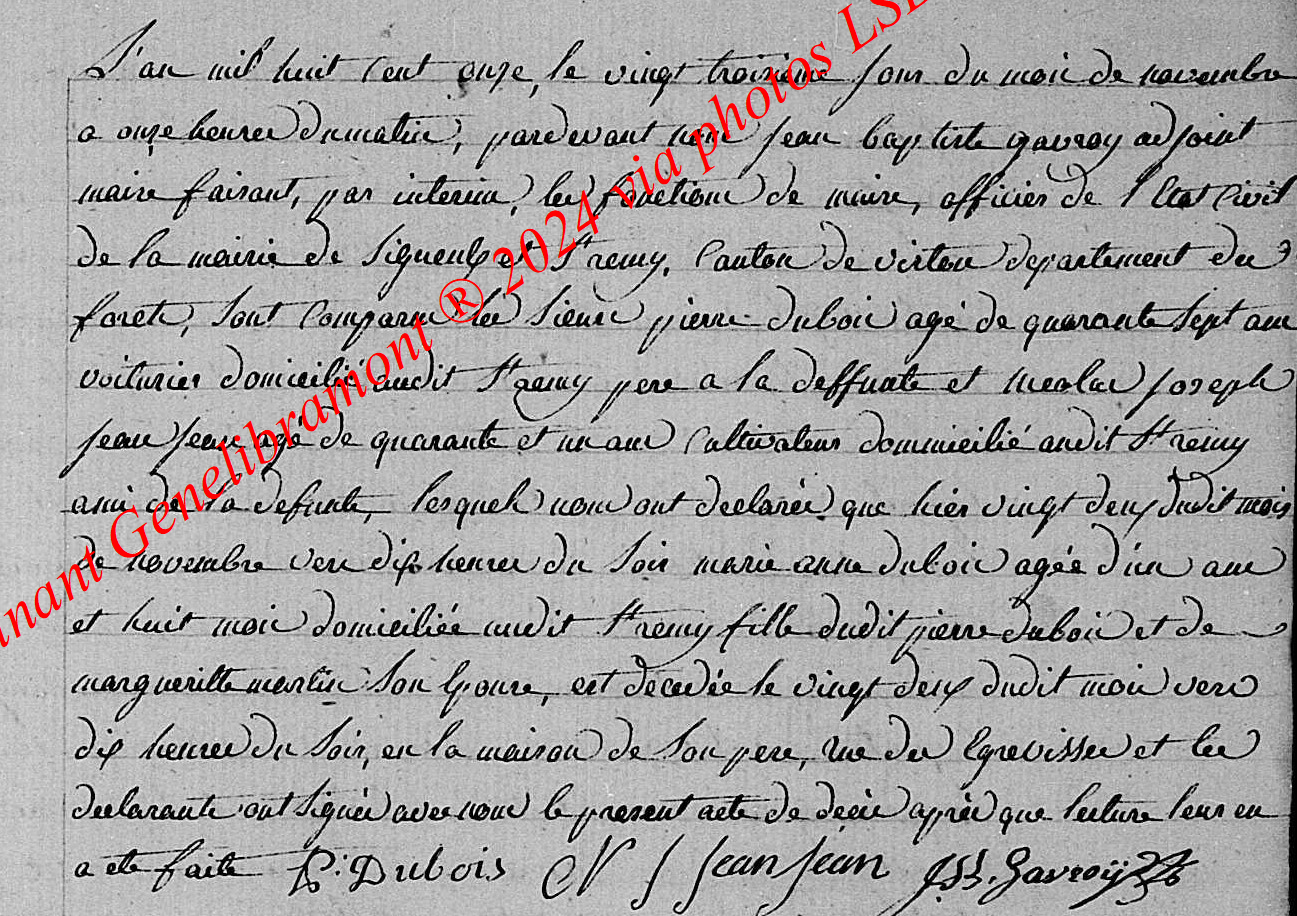 L'an mil huit cent onze, le vingt troisieme jour du mois de novembre
a onze heures du matin, pardevant nous jean baptiste gavroy adjoint
maire faisant, par interim, les fonctions de maire, officier de l'Etat Civil
de la mairie de Signeulx et St remy, Canton de virton departement des
forets, sont Comparus les Sieurs pierre dubois agé de quarante sept ans
voiturier domicilié audit St remy pere a la deffunte et nicolas joseph
jean jean agé de quarante et un ans Cultivateur domicilié audit St remy
ami de la defunte, lesquels nous ont declarés que hier vingt deux dudit mois
de novembre vers dix heures du soir marie anne dubois agée d'un ans
et huit mois domiciliée audit St remy fille dudit pierre dubois et de
margueritte martin son Epouse, est decedée le vingt deux dudit mois vers
dix heures du soir, en la maison de son pere, rue des Egrevisses et les
declarants ont signés avec nous le present acte de decès après que lecture leur en
a été faite P. Dubois N J jean jean JSB. Gavroÿ
nant Genelibramont ® 2024 via photos LSD